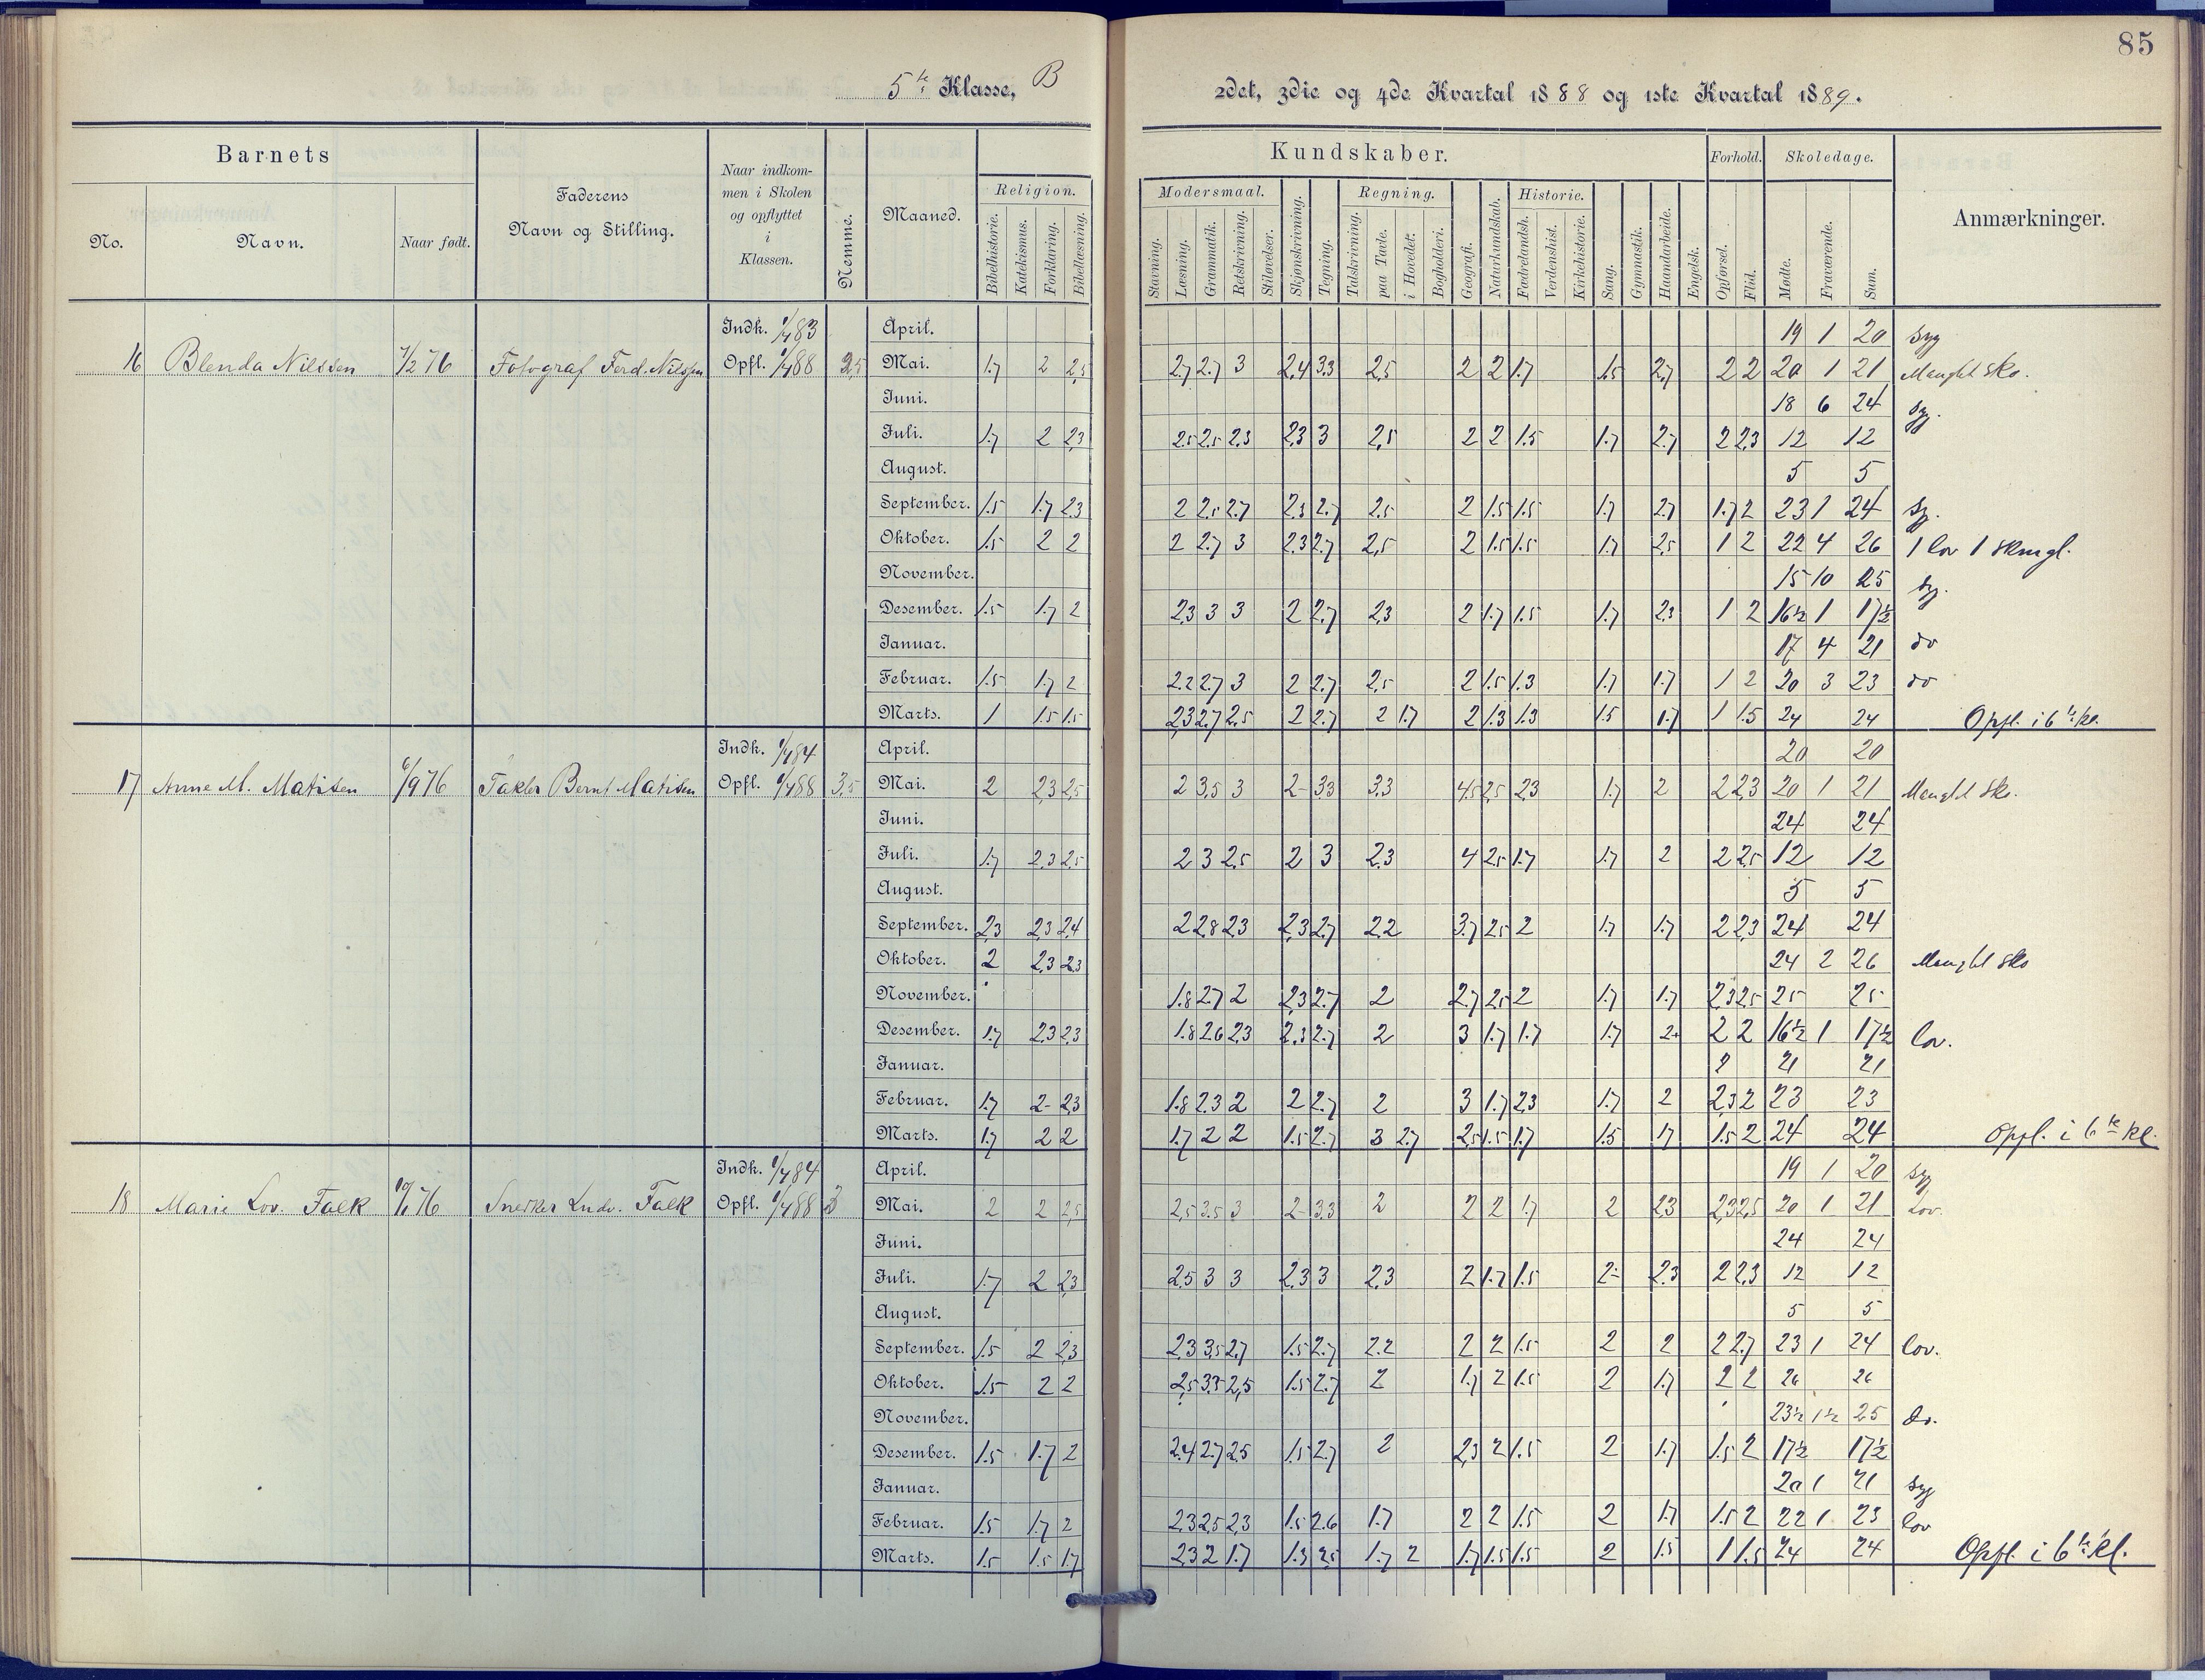 85
5te Klasse, B
2det, 3die og 4de Kvartal 1888 og 1ste Kvartal 1889.
Barnets
No.
Navn.
Naar født.
Faderens
Navn og Stilling.
Naar indkom-
men i Skolen
og opflyttet
i
Klassen.
Nemme.
Maaned.
Religion.
Bibelhistorie.
Katekismus.
Forklaring.
Bibellæsning.
Kundskaber.
Modersmaal.
Stavning.
Læsning.
Grammatik.
Retskrivning.
Stiløvelser.
Skjønskrivning.
Tegning.
Regning.
Talskrivning.
paa Tavle.
i Hovedet.
Bogholderi.
Geografi.
Naturkundskab.
Historie.
Fædrelandsh.
Verdenshist.
Kirkehistorie.
Sang.
Gymnastik.
Haandarbeide.
Engelsk.
Forhold.
Opførsel.
Flid.
Skoledage.
Mødte.
Fraværende.
Sum.
Anmærkninger.
16 Blenda Nilssen 7/2 76 Fotograf Ferd. Nilssen Indk. 1/4 83 Opfl. 1/4 88 2,5
April. 19 1 20 Syg
Mai. 1.7 2 2,5 2.7 2.7 3 2,4 3.3 2,5 2 2 1.7 1.5 2.7 2 2 20 1 21 Manglet sko.
Juni. 18 6 24 Syg.
Juli. 1.7 2 2,3 2.5 2.5 2.3 2,3 3 2,5 2 2 1.5 1.7 2.7 2 2,3 12 12
August. 5 5
September. 1.5 1.7 2.3 2 2.5 2.7 2.3 2.7 2.5 2 1.5 1.5 1.7 2.7 1.7 2 23 1 24 Sy.
Oktober. 1.5 2 2 2 2.7 3 2.3 2.7 2,5 2 1.5 1.5 1.7 2,5 1 2 22 4 26 1 lov 1 skmgl.
November. 15 10 25 Syg.
Desember. 1.5 1.7 2 2,3 3 3 2 2.7 2,3 2 1.7 1.5 1.7 2.3 1 2 16½ 1 17½
Januar. 17 4 21 do
Februar. 1.5 1.7 2 2.2 2.7 3 2 2.7 2,5 2 1.5 1.3 1.7 1.7 1 2 20 3 23 do
Marts. 1 1.5 1.5 2,3 2.7 2.5 2 2.7 2 1.7 2 1.3 1.3 1.5 1.7 1 1.5 24 24 Opfl. i 6te kl.
17 Anne M. Matisen 6/9 76 Takler Bernt Matisen Indk. 1/4 84 Opfl. 1/4 88 3,5
April. 20 20
Mai. 2 2,3 2,5 2 3,5 3 2- 3.3 3.3 4,5 2,5 2,3 1.7 2 2 2,3 20 1 21 Manglet sko.
Juni. 24 24
Juli. 1.7 2.3 2.5 2 3 2,5 2 3 2,3 4 2.5 1.7 1.7 2 2 2,5 12 12
August. 5 5
September. 2,3 2,3 2,4 2 2.8 2.3 2,3 2.7 2.2 3.7 2.5 2 1.7 1.7 2 2,3 24 24
Oktober. 2 2,3 2,3 24 2 26 Manglet sko
November. 1.8 2.7 2 2,3 2.7 2 2.7 2.5 2 1.7 1.7 2,3 2,5 25 25
Desember. 1.7 2.3 2,3 1.8 2.6 2.3 2,3 2.7 2 3 1.7 1.7 1.7 2+ 2 2 16½ 1 17½ lov.
Januar. 2 21 21
Februar. 1.7 2- 2,3 1.8 2.3 2 2 2.7 2 3 1.7 2,3 1.7 2 2,3 2 23 23
Marts. 1.7 2 2 1.7 2 2 1.5 2.7 3 2.7 2,5 1.5 1.7 1.5 1.7 1.5 2 24 24 Opfl. i 6te kl.
18 Marie Lov. Falk 76 Snedker Ludv. Falk Indk. 1/4 84 Opfl. 1/4 88 3
April. 19 1 20 Syg
Mai. 2 2 2,5 2,5 3.5 3 2- 3.3 2 2 2 1.7 2 2.3 2,3 2,5 20 1 21 Lov.
Juni. 24 24
Juli. 1.7 2 2,3 2.5 3 3 2,3 3 2,3 2 1.7 1.5 2- 2.3 2 2,3 12 12
August. 5 5
September. 1.5 2 2,3 2,3 3.5 2,7 1.5 2.7 2.2 2 2 1.5 2 2 2 2.7 23 1 24 lov.
Oktober. 1.5 2 2 2,5 3.3 2,5 1.5 2.7 2 1.7 2 1.5 2 1.7 2 2 26 26
November. 23½ 1½ 25 do.
Desember. 1.5 1.7 2 2.4 2.7 2.5 1.5 2.7 2 2,3 2 1.5 2 1.7 1.5 2 17½ 17½
Januar. 20 1 21 Syg
Februar. 1.5 1.7 2 2.3 2.5 2.3 1.5 2.6 1.7 2 2 1.5 2 1.7 1.5 2 22 1 23 lov
Marts. 1.5 1.5 1.7 2.3 2 1.7 1.3 2.5 1.7 2 1.7 1.5 1.5 2 1.5 1 1.5 24 24 Opfl. i 6te Kl.